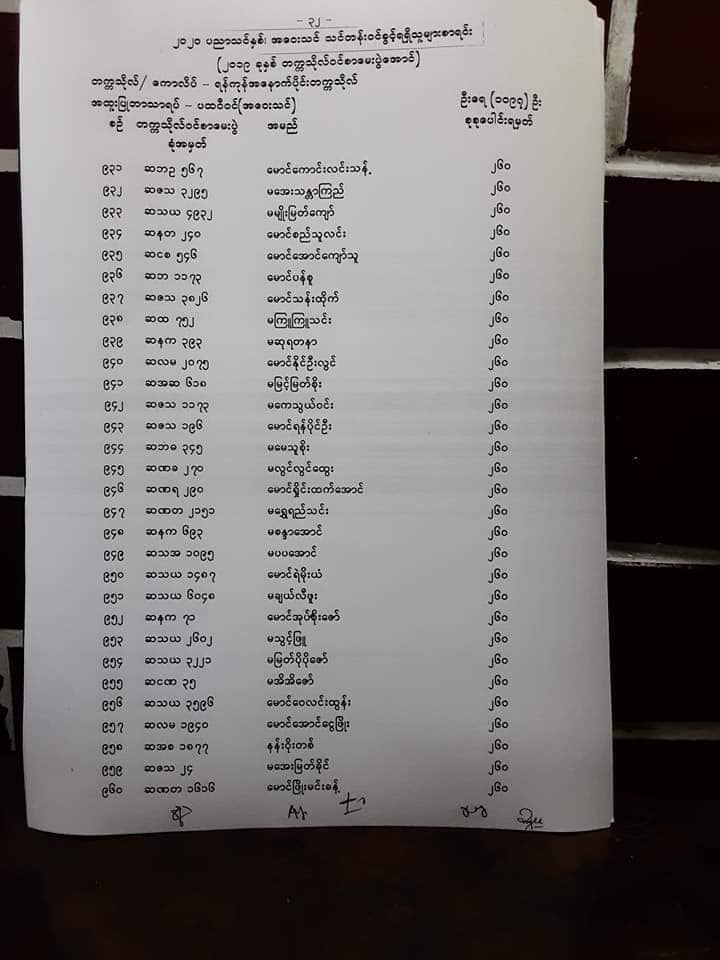 - ၃၂ -
၂၀၂၀ ပညာသင်နှစ်၊ အဝေးသင် သင်တန်းဝင်ခွင့်ရရှိသူများစာရင်း
(၂၀၁၉ ခုနှစ် တက္ကသိုလ်ဝင်စာမေးပွဲအောင်)
တက္ကသိုလ်/ ကောလိပ် - ရန်ကုန်အနောက်ပိုင်းတက္ကသိုလ်
အထူးပြုဘာသာရပ် - ပထဝီဝင်(အဝေးသင်) ဦးရေ (၁၀၉၇) ဦး
စဉ် တက္ကသိုလ်ဝင်စာမေးပွဲ အမည် စုစုပေါင်းရမှတ်
ခုံအမှတ်
၉၃၁ ဆဘဥ ၅၆၇ မောင်ကောင်းလင်းသန့် ၂၆၀
၉၃၂ ဆဇသ ၃၂၉၅ မအေးသန္တာကြည် ၂၆၀
၉၃၃ ဆသယ ၄၉၃၂ မမျိုးမြတ်ကျော် ၂၆၀
၉၃၄ ဆနတ ၂၄၀ မောင်စည်သူလင်း ၂၆၀
၉၃၅ ဆငစ ၅၄၆ မောင်အောင်ကျော်သူ ၂၆၀
၉၃၆ ဆဘ ၁၁၇၃ မောင်ပန်စူ ၂၆၀
၉၃၇ ဆဇသ ၃၈၂၆ မောင်သန်းထိုက် ၂၆၀
၉၃၈ ဆထ ၇၅၂ မကြူကြူသင်း ၂၆၀
၉၃၉ ဆနက ၃၉၃ မဆုရတနာ ၂၆၀
၉၄၀ ဆလမ ၂၀၇၅ မောင်နိုင်ဦးလွင် ၂၆၀
၉၄၁ ဆအဆ ၆၁၈ မမြင့်မြတ်စိုး ၂၆၀
၉၄၂ ဆဇသ ၁၁၇၃ မကေသွယ်ဝင်း ၂၆၀
၉၄၃ ဆဇသ ၁၉၆ မောင်ရန်ပိုင်ဦး ၂၆၀
၉၄၄ ဆဘဓ ၃၄၅ မမေသူစိုး ၂၆၀
၉၄၅ ဆဏခ ၂၇၀ မလွင်လွင်ထွေး ၂၆၀
၉၄၆ ဆဏရ ၂၉၀ မောင်ရှိုင်းထက်အောင် ၂၆၀
၉၄၇ ဆဏတ ၂၁၅၁ မရွှေရည်သင်း ၂၆၀
၉၄၈ ဆနက ၆၉၃ မစန္ဒာအောင် ၂၆၀
၉၄၉ ဆသအ ၁၀၉၅ မပပအောင် ၂၆၀
၉၅၀ ဆသယ ၁၄၈၇ မောင်ရဲမိုးယံ ၂၆၀
၉၅၁ ဆသယ ၆၀၄၈ မချယ်လီဖူး ၂၆၀
၉၅၂ ဆနက ၇၁ မောင်အုပ်စိုးဇော် ၂၆၀
၉၅၃ ဆသယ ၂၆၀၂ မသွင့်ဖြူ ၂၆၀
၉၅၄ ဆသယ ၃၂၂၁ မမြတ်ပိုပိုဇော် ၂၆၀
၉၅၅ ဆငဏ ၃၅ မအိအိဇော် ၂၆၀
၉၅၆ ဆသယ ၃၅၉၆ မောင်ဝေလင်းထွန်း ၂၆၀
၉၅၇ ဆလမ ၁၉၄၀ မောင်အောင်ငွေဖြိုး ၂၆၀
၉၅၈ ဆအစ ၁၈၇၇ နန်းဝိုးတစ် ၂၆၀
၉၅၉ ဆဇသ ၂၄ မအေးမြတ်ခိုင် ၂၆၀
၉၆၀ ဆဏတ ၁၆၁၆ မောင်ဖြိုးမင်းခန့် ၂၆၀